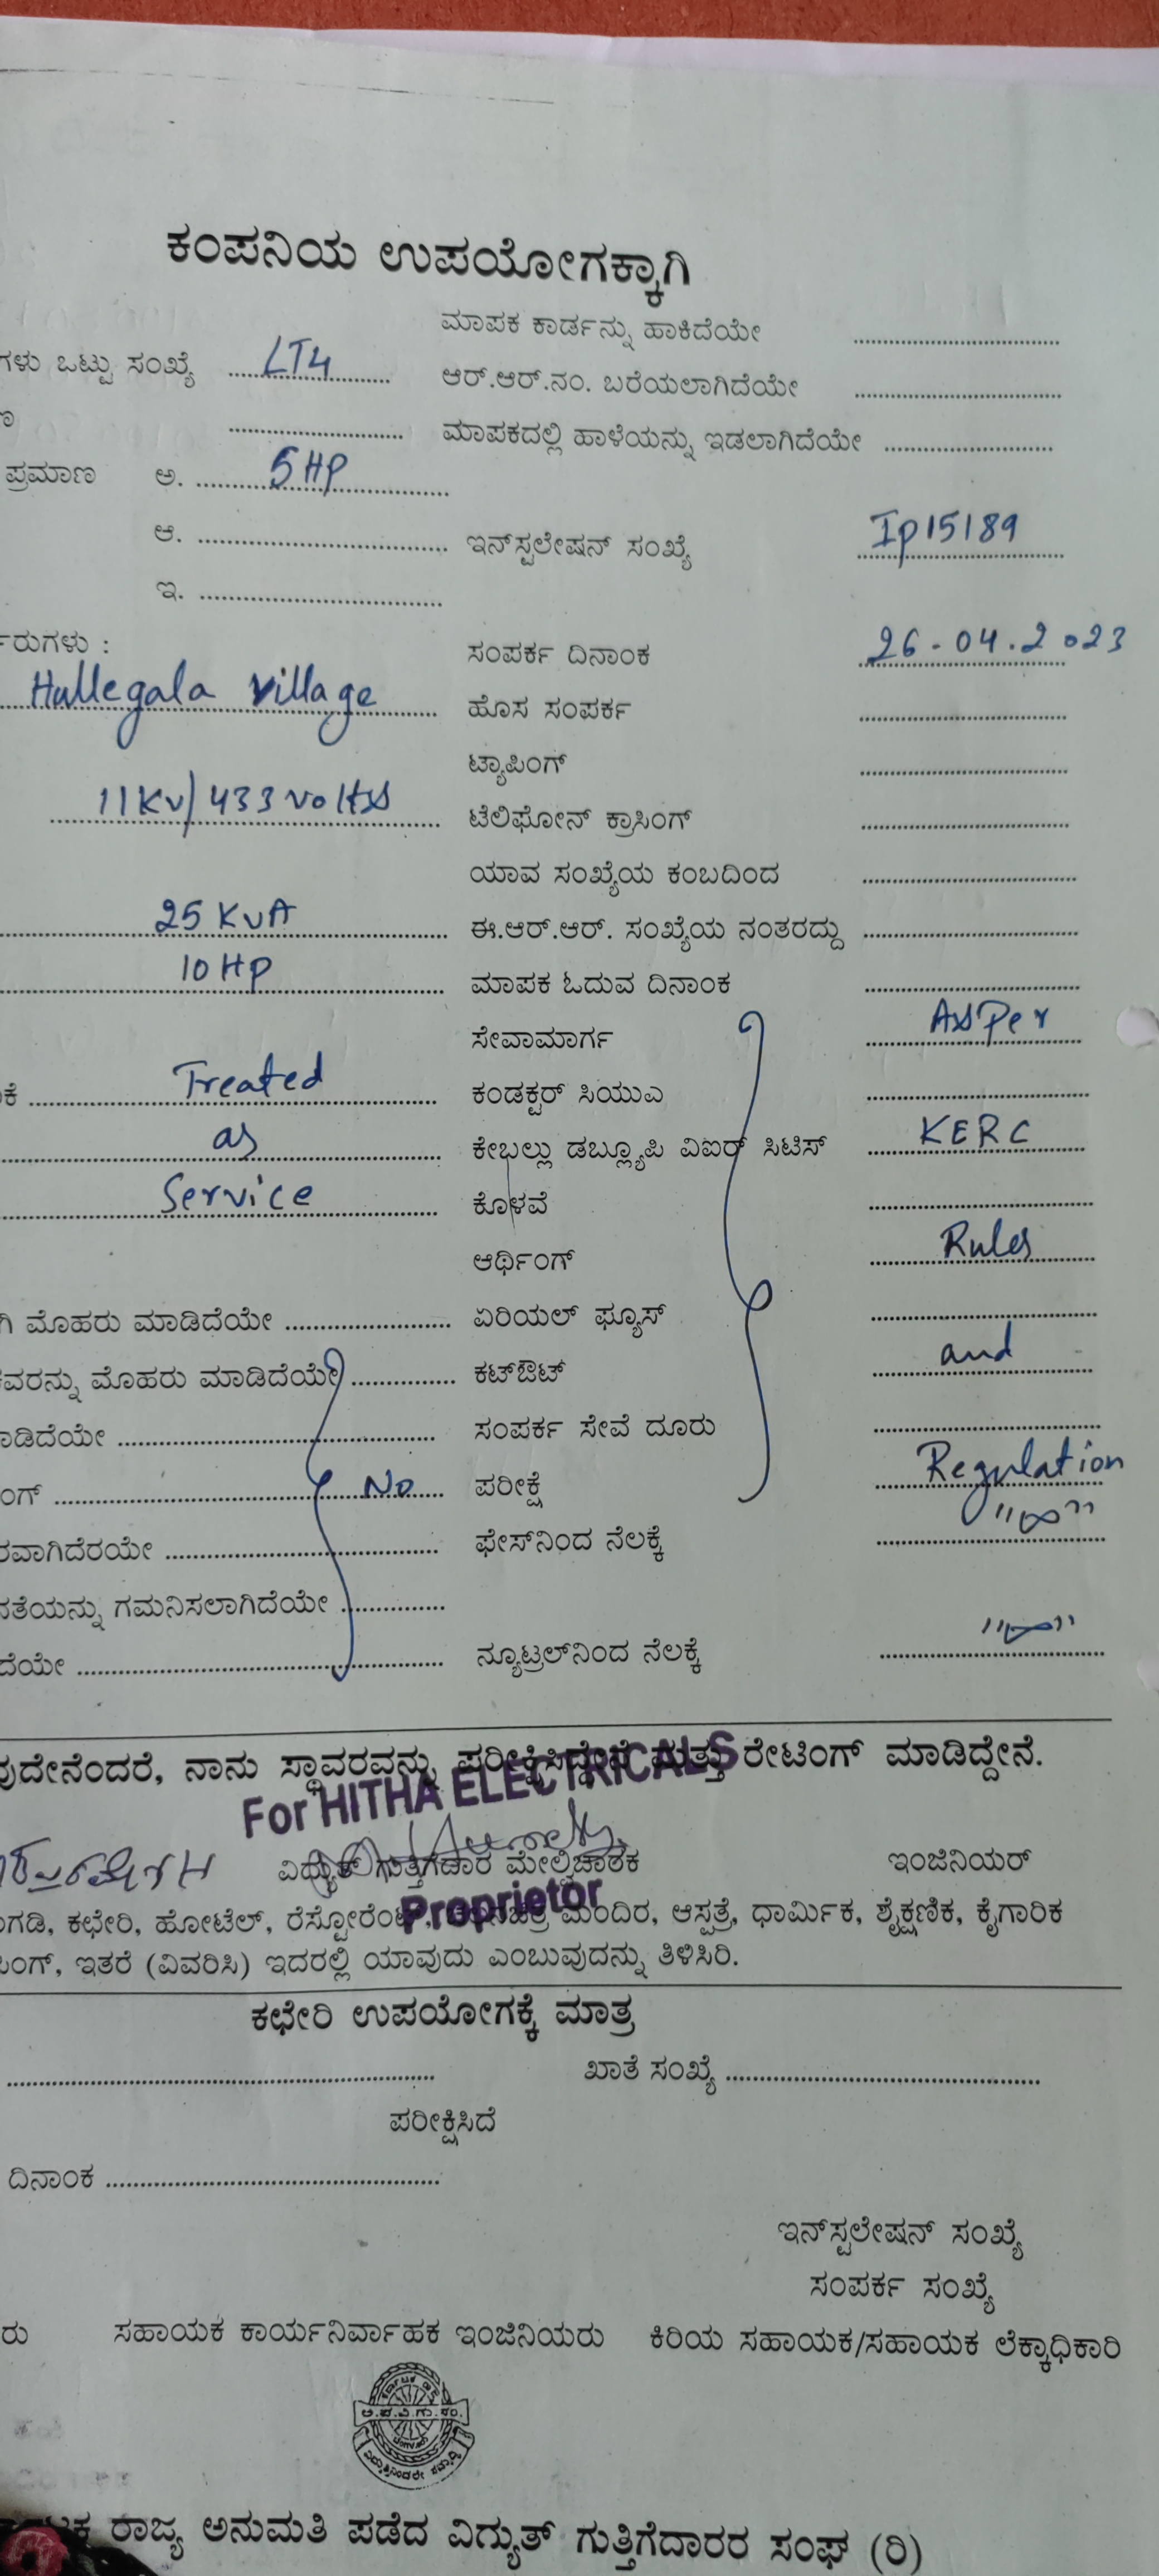 ಕಂಪನಿಯ ಉಪಯೋಗಕ್ಕಾಗಿ
ಮಾಪಕ ಕಾರ್ಡನ್ನು ಹಾಕಿದೆಯೇ
ಗಳು ಒಟ್ಟು ಸಂಖ್ಯೆ LT4 ಆರ್.ಆರ್.ನಂ. ಬರೆಯಲಾಗಿದೆಯೇ
ಮಾಪಕದಲ್ಲಿ ಹಾಳೆಯನ್ನು ಇಡಲಾಗಿದೆಯೇ
ಪ್ರಮಾಣ ಅ. 5 HP
ಆ. ಇನ್‌ಸ್ಟಲೇಷನ್ ಸಂಖ್ಯೆ Ip15189
ಇ.
ರುಗಳು : ಸಂಪರ್ಕ ದಿನಾಂಕ 26-04.2023
Hullegala village ಹೊಸ ಸಂಪರ್ಕ
ಟ್ಯಾಪಿಂಗ್
11Kv/433 volts ಟೆಲಿಫೋನ್ ಕ್ರಾಸಿಂಗ್
ಯಾವ ಸಂಖ್ಯೆಯ ಕಂಬದಿಂದ
25 KvA ಈ.ಆರ್.ಆರ್. ಸಂಖ್ಯೆಯ ನಂತರದ್ದು
10 HP ಮಾಪಕ ಓದುವ ದಿನಾಂಕ
ಸೇವಾಮಾರ್ಗ As Per
ಕೆ Treated ಕಂಡಕ್ಟರ್ ಸಿಯುಎ
as ಕೇಬಲ್ಲು ಡಬ್ಲ್ಯೂಪಿ ವಿಐರ್ ಸಿಟಿಸ್ KERC
Service ಕೊಳವೆ
ಆರ್ಥಿಂಗ್ Rules
ಗಿ ಮೊಹರು ಮಾಡಿದೆಯೇ ಏರಿಯಲ್ ಫ್ಯೂಸ್
ಕವರನ್ನು ಮೊಹರು ಮಾಡಿದೆಯೇ ಕಟ್‌ಔಟ್ and
ಾಡಿದೆಯೇ ಸಂಪರ್ಕ ಸೇವೆ ದೂರು
ಂಗ್ No ಪರೀಕ್ಷೆ Regulation
ರವಾಗಿದೆರಯೇ ಫೇಸ್‌ನಿಂದ ನೆಲಕ್ಕೆ "∞"
ನತೆಯನ್ನು ಗಮನಿಸಲಾಗಿದೆಯೇ
ದೆಯೇ ನ್ಯೂಟ್ರಲ್‌ನಿಂದ ನೆಲಕ್ಕೆ "∞"
ವುದೇನೆಂದರೆ, ನಾನು ಸ್ಥಾವರವನ್ನು ಪರೀಕ್ಷಿಸಿದ್ದೇನೆ ಮತ್ತು ರೇಟಿಂಗ್ ಮಾಡಿದ್ದೇನೆ.
For HITHA ELECTRICALS
ವಿದ್ಯುತ್ ಗುತ್ತಿಗೆದಾರ ಮೇಲ್ವಿಚಾರಕ ಇಂಜಿನಿಯರ್
Proprietor
ಂಗಡಿ, ಕಛೇರಿ, ಹೋಟೆಲ್, ರೆಸ್ಟೋರೆಂಟ್, ಮಂದಿರ, ಆಸ್ಪತ್ರೆ, ಧಾರ್ಮಿಕ, ಶೈಕ್ಷಣಿಕ, ಕೈಗಾರಿಕ
ಂಗ್, ಇತರೆ (ವಿವರಿಸಿ) ಇದರಲ್ಲಿ ಯಾವುದು ಎಂಬುವುದನ್ನು ತಿಳಿಸಿರಿ.
ಕಛೇರಿ ಉಪಯೋಗಕ್ಕೆ ಮಾತ್ರ
ಖಾತೆ ಸಂಖ್ಯೆ
ಪರೀಕ್ಷಿಸಿದೆ
ದಿನಾಂಕ
ಇನ್‌ಸ್ಟಲೇಷನ್ ಸಂಖ್ಯೆ
ಸಂಪರ್ಕ ಸಂಖ್ಯೆ
ರು ಸಹಾಯಕ ಕಾರ್ಯನಿರ್ವಾಹಕ ಇಂಜಿನಿಯರು ಕಿರಿಯ ಸಹಾಯಕ/ಸಹಾಯಕ ಲೆಕ್ಕಾಧಿಕಾರಿ
ಅ.ಪ.ವಿ.ಗು.ಸಂ.
ರಾಜ್ಯ ಅನುಮತಿ ಪಡೆದ ವಿದ್ಯುತ್ ಗುತ್ತಿಗೆದಾರರ ಸಂಘ (ರಿ)